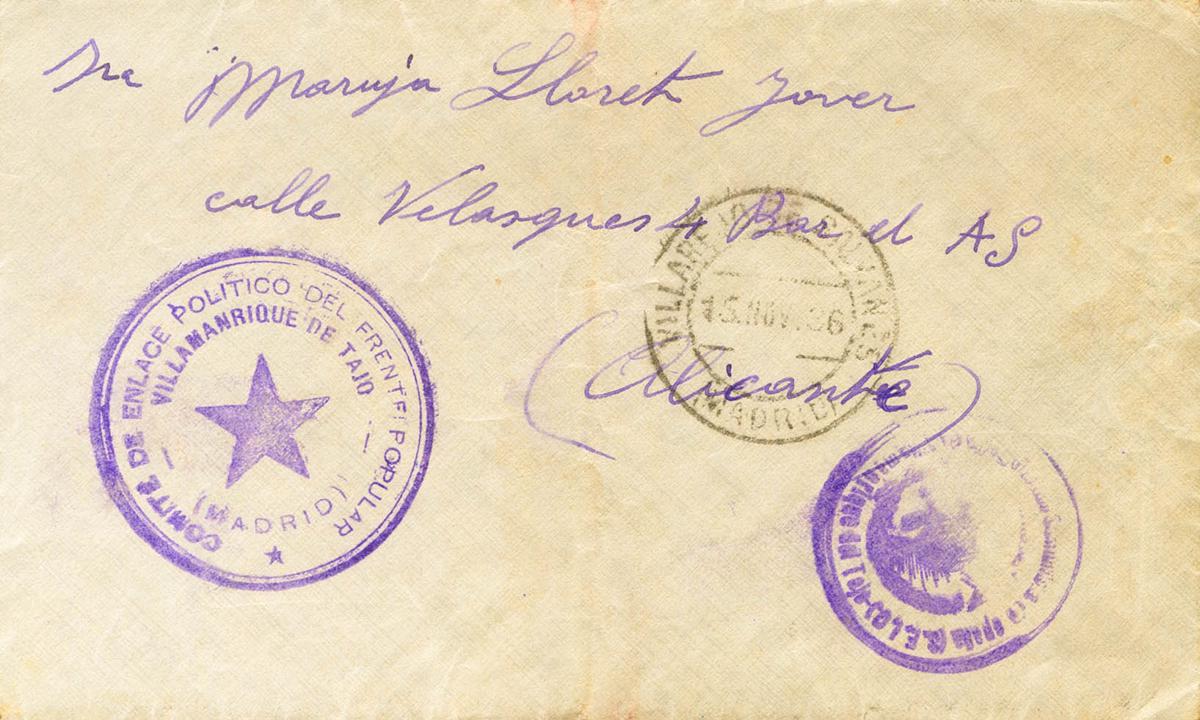 Sra Maruja Lloret Jover
calle Velasques 4 Bar el AS
(Alicante)
VILLAREJO DE SALVANES
15.NOV.36
MADRID
COMITÉ DE ENLACE POLITICO DEL FRENTE POPULAR
VILLAMANRIQUE DE TAJO
(MADRID)